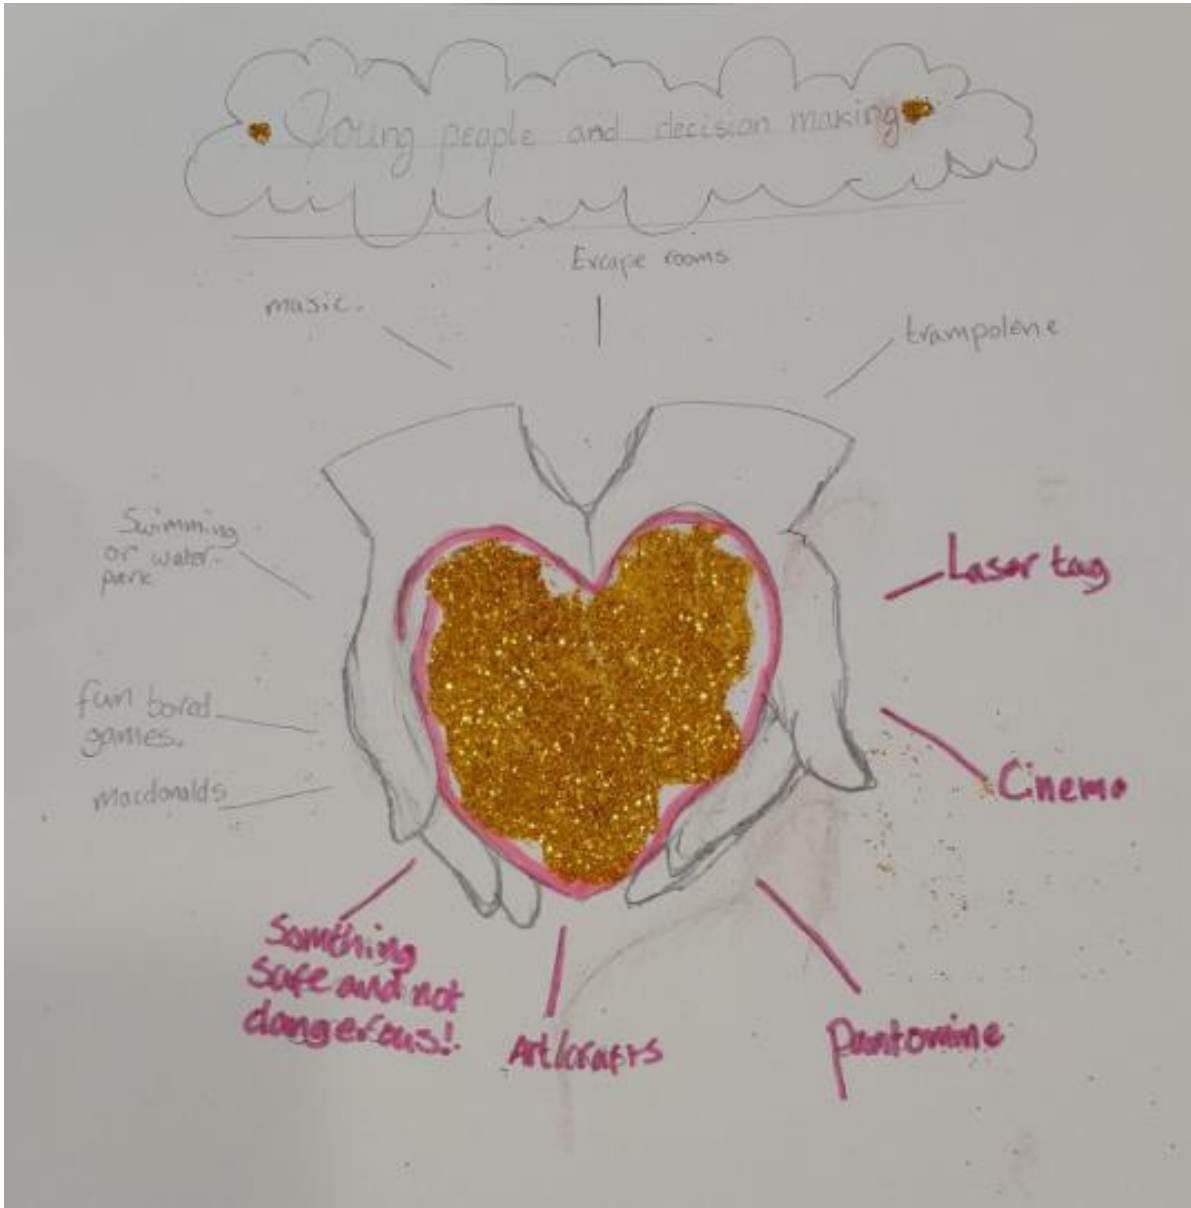 Young people and decision making
Escape rooms
music.
trampolene
Swimming
or water-
park
Laser tag
fun bored
games.
macdonalds
Cinema
Somthing
safe and not
dangerous!
Art/crafts
Pantomine